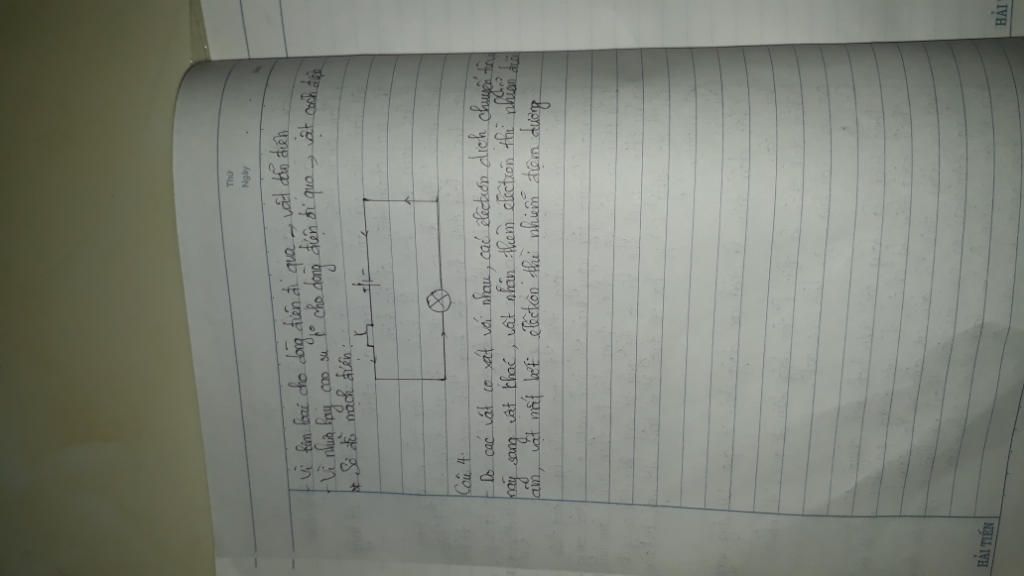 Thứ
Ngày
- Vì kim loại cho dòng điện đi qua → vật dẫn điện
- Vì nhựa hay cao su ko cho dòng điện đi qua → vật cách điện
* Sơ đồ mạch điện:
+ -
Câu 4:
- Do các vật cọ xát với nhau, các electron dịch chuyển từ
này sang vật khác, vật nhận thêm electron thì nhiễm điện
âm, vật mất bớt electron thì nhiễm điện dương
HẢI TIẾN
HẢI